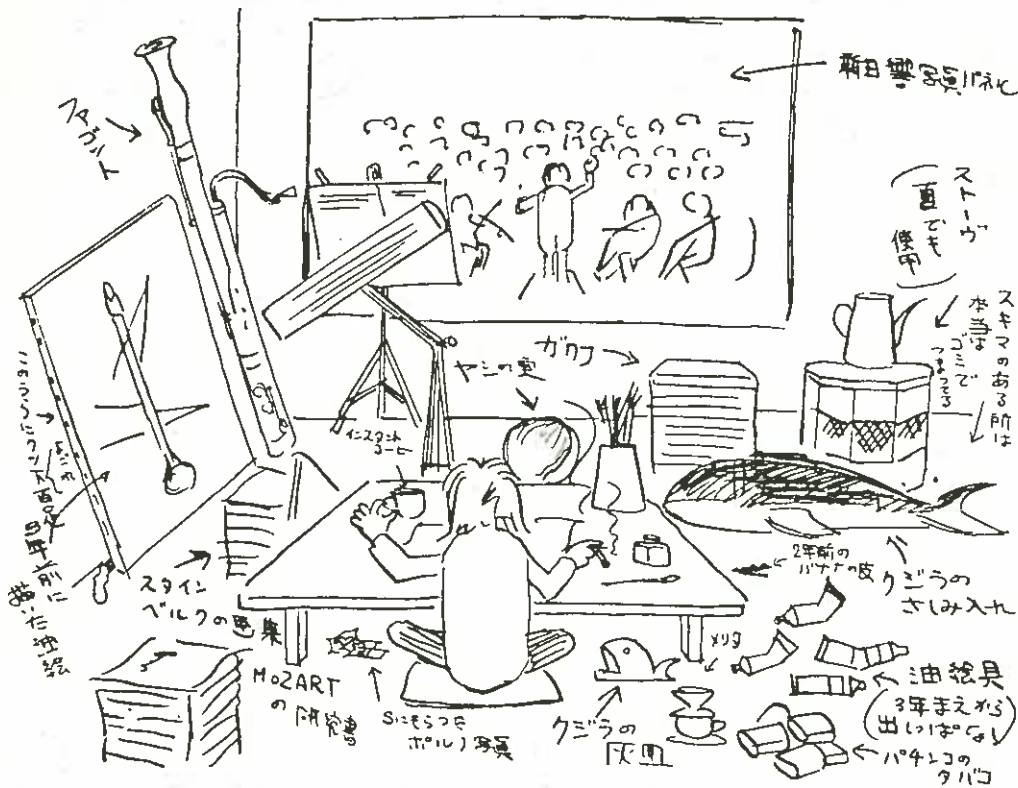 新日響写真パネル
ファゴット
ストーヴ
(夏でも
使用)
スキマのある所は
本当は
ゴミで
つまってる
ガクフ
ヤシの実
インスタント
コーヒー
このうらに
8年前に
描いた油絵
スタイン
ベルクの画集
2年前の
バナナの皮
クジラの
さしみ入れ
MOZART
の研究書
Sにもらった
ポルノ写真
クジラの
灰皿
メリタ
油絵具
(3年まえから
出しっぱなし)
パチンコの
タバコ